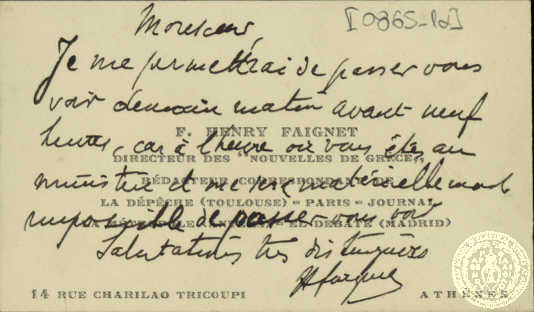 [0865-1d]
Monsieur,
Je me permettrai de passer vous
voir demain matin avant neuf
heures, car à l'heure où vous êtes au
ministère il me sera matériellement
impossible de passer vous voir
Salutations très distinguées
HFaignet
F. HENRY FAIGNET
DIRECTEUR DES "NOUVELLES DE GRÈCE"
RÉDACTEUR CORRESPONDANT DE
LA DÉPÊCHE (TOULOUSE) - PARIS-JOURNAL
EL DEBATE (MADRID)
14 RUE CHARILAO TRICOUPI
ATHÈNES